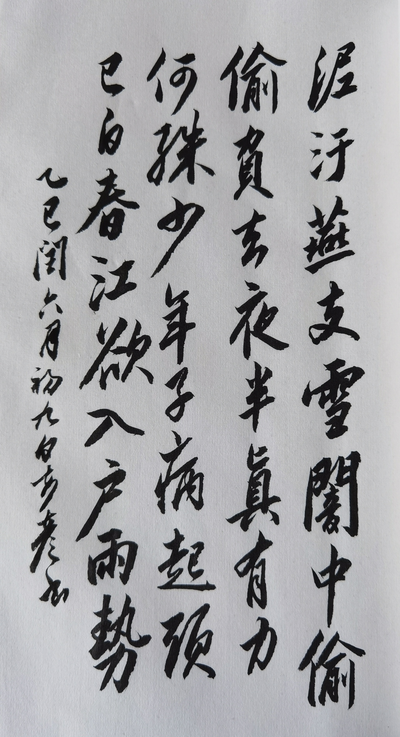 泥汙燕支雪闇中偷
偷負去夜半真有力
何殊少年子病起頭
已白春江欲入戶雨勢
乙巳閏六月初九日